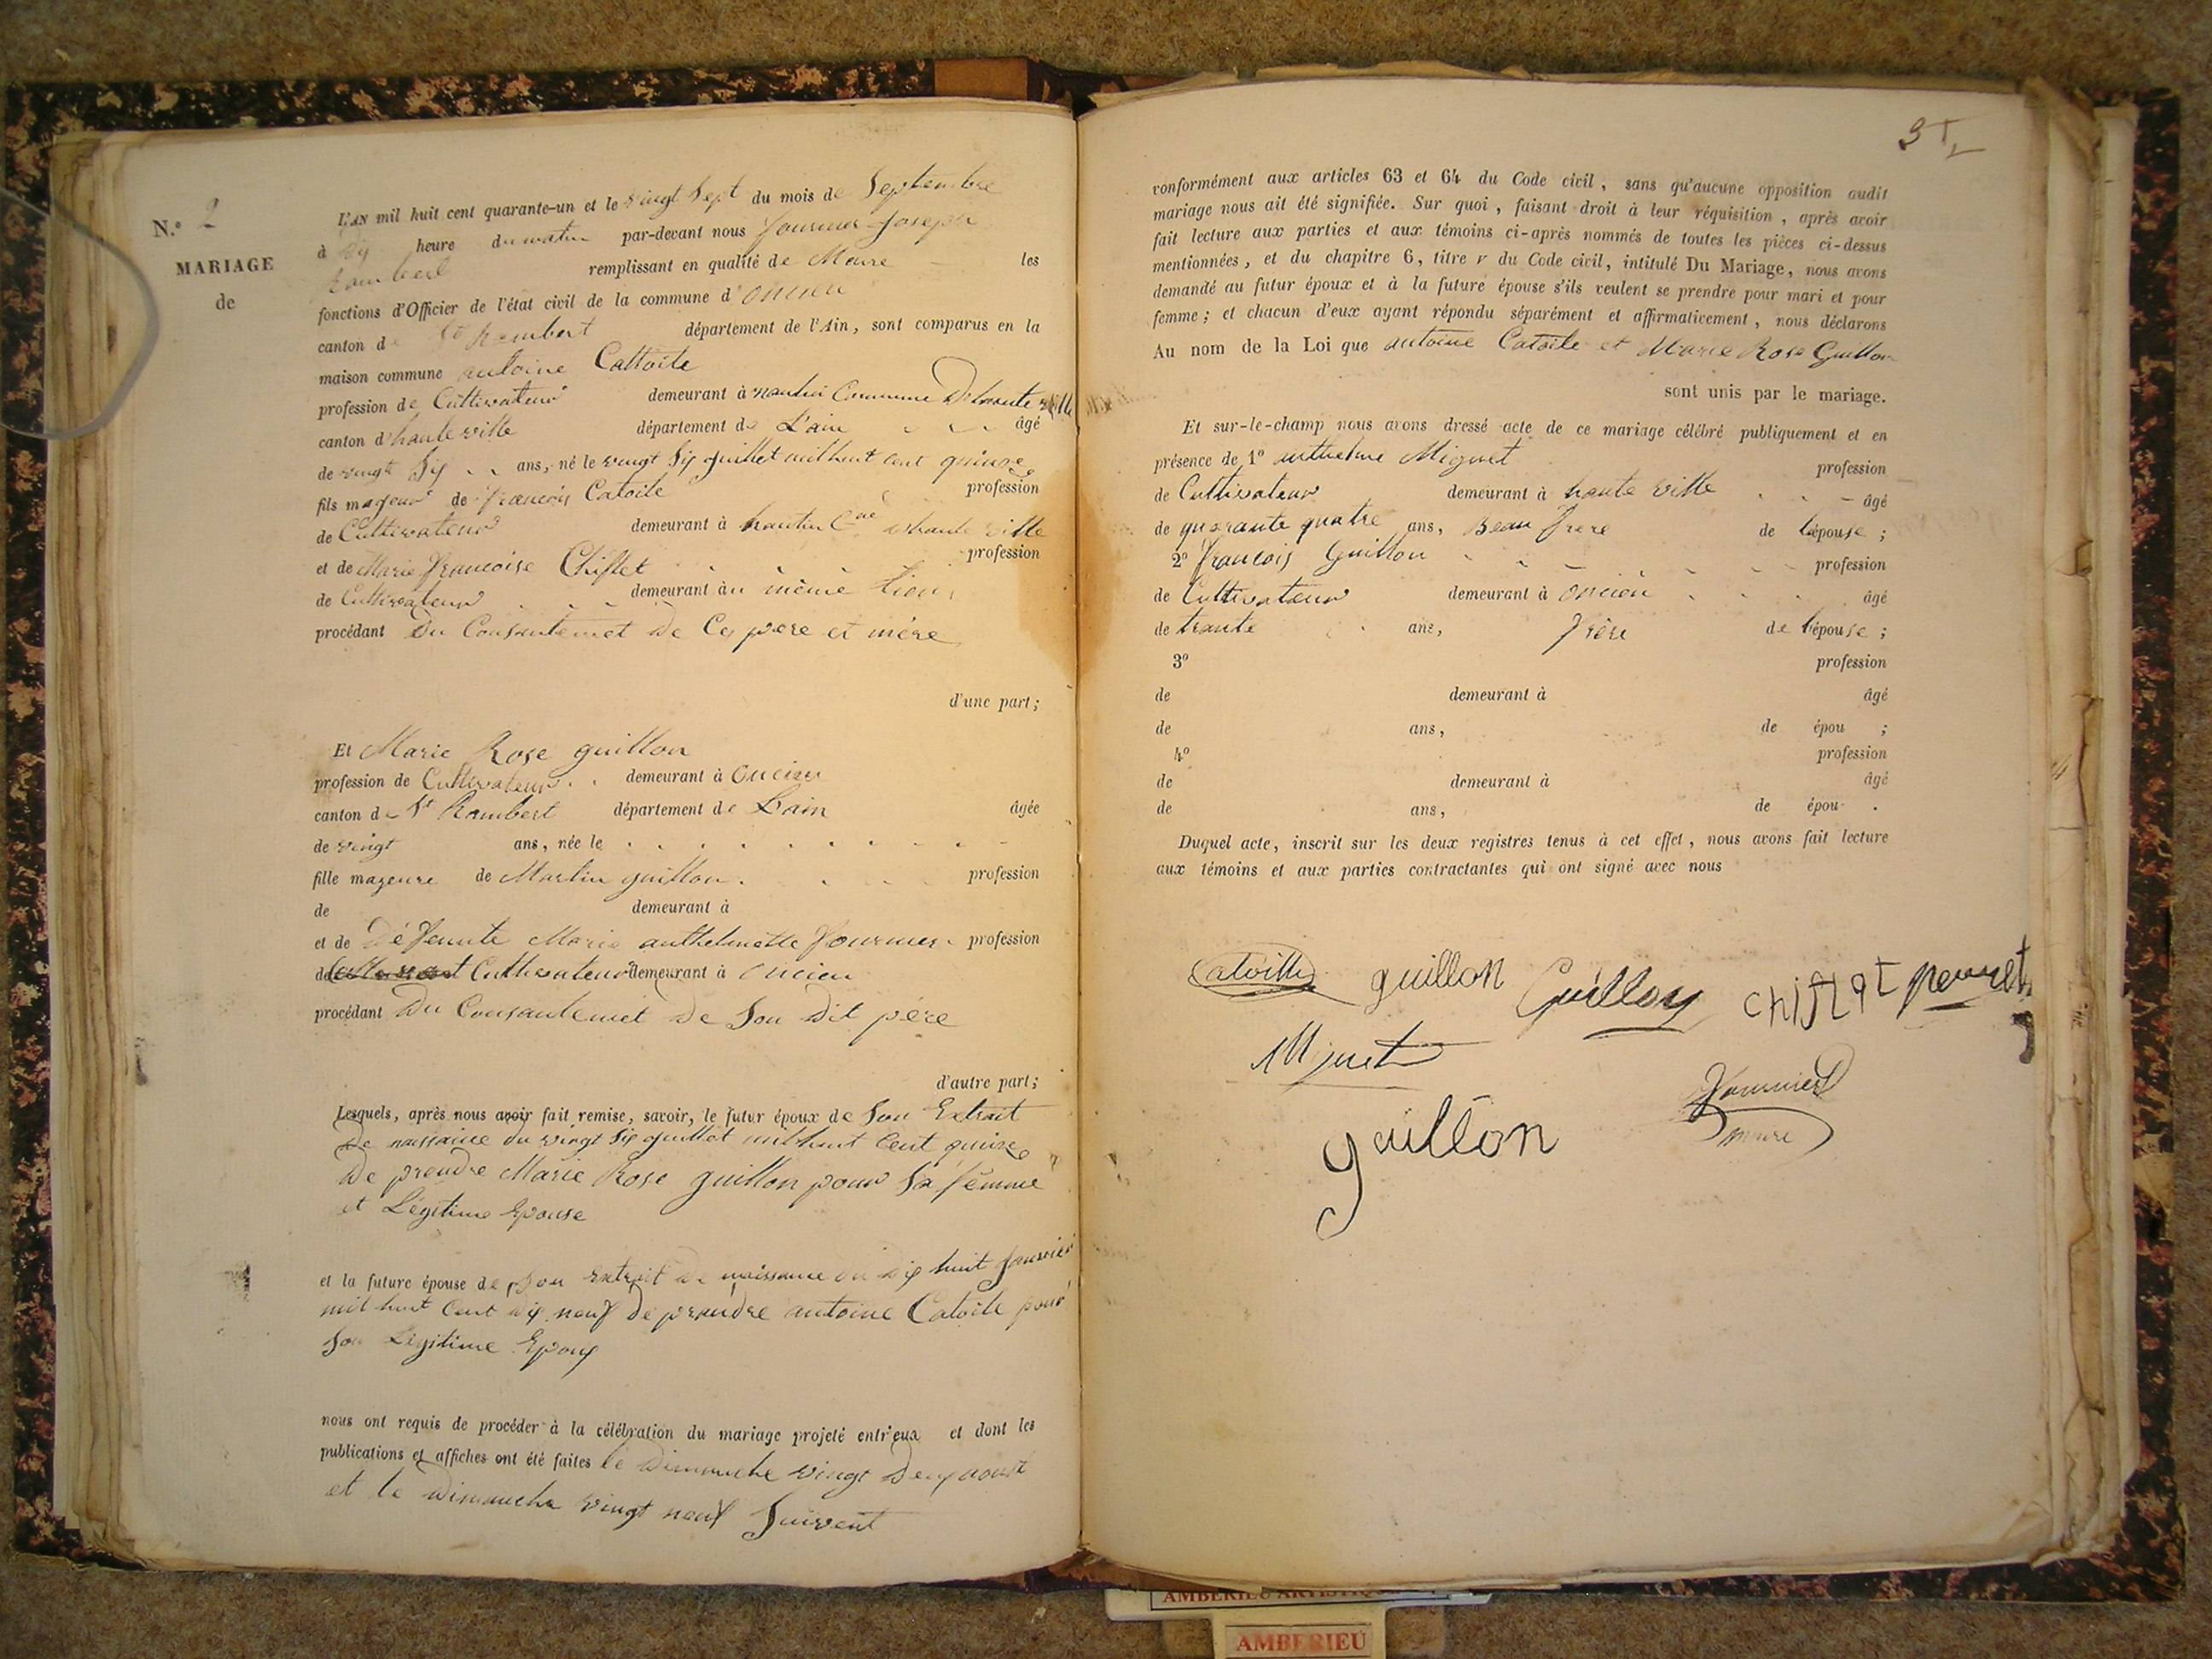 N.º 2
MARIAGE
de
L'AN mil huit cent quarante-un et le vingt Sept du mois de Septembre
à dix heure du matin par-devant nous fournier Joseph
Rambert remplissant en qualité de Maire les
fonctions d'Officier de l'état civil de la commune d'oncieu
canton de St Rambert département de l'Ain, sont comparus en la
maison commune antoine Cattoite
profession de Cultivateur demeurant à nantui Commune Dhauteville
canton d'hauteville département de L'ain âgé
de vingt Six ans, né le vingt Six Juillet mil huit cent quinze
fils majeur de francois Catoite profession
de Cultivateur demeurant à nantui Cne dhaute ville
et de Marie francoise Chiflet profession
de Cultivateur demeurant au même lieu
procédant Du Consentemet De Ces père et mère
d'une part;
Et Marie Rose guillon
profession de Cultivateur demeurant à oncieu
canton de St Rambert département de Lain âgée
de vingt ans, née le
fille mageure de Martin guillon profession
de demeurant à
et de Défeunte Marie anthelmette fournier profession
de Cultivateur demeurant à oncieu
procédant Du Consantemet De Son Dit père
d'autre part;
Lesquels, après nous avoir fait remise, savoir, le futur époux de Son Extrait
De naissance du vingt Six Juillet mil huit Cent quinze
De prendre Marie Rose guillon pour Sa femme
et Légitime Epouse
et la future épouse de Son Extrait De naissance du dix huit Janvier
mil huit Cent dix neuf De prandre antoine Catoite pour
Son Légitime Epoux
nous ont requis de procéder à la célébration du mariage projeté entr'eux et dont les
publications et affiches ont été faites le Dimanche vingt Deux aoust
et le Dimanche vingt neuf Suivent
conformément aux articles 63 et 64 du Code civil, sans qu'aucune opposition audit
mariage nous ait été signifiée. Sur quoi, faisant droit à leur réquisition, après avoir
fait lecture aux parties et aux témoins ci-après nommés de toutes les pièces ci-dessus
mentionnées, et du chapitre 6, titre v du Code civil, intitulé Du Mariage, nous avons
demandé au futur époux et à la future épouse s'ils veulent se prendre pour mari et pour
femme; et chacun d'eux ayant répondu séparément et affirmativement, nous déclarons
Au nom de la Loi que antoine Catoite et Marie Rose Guillon
sont unis par le mariage.
Et sur-le-champ nous avons dressé acte de ce mariage célébré publiquement et en
présence de 1º anthelme Miguet profession
de Cultivateur demeurant à haute ville âgé
de quarante quatre ans, Beau frere de l'épouse;
2º francois Guillon profession
de Cultivateur demeurant à oncieu âgé
de trante ans, frère de l'épouse;
3º profession
de demeurant à âgé
de ans, de épou ;
4º profession
de demeurant à âgé
de ans, de épou .
Duquel acte, inscrit sur les deux registres tenus à cet effet, nous avons fait lecture
aux témoins et aux parties contractantes qui ont signé avec nous
Catoitte guillon Guillon chiflat perret
Miguet
fournier
maire
guillon
AMBERIEU ARTISTIQUE
AMBERIEU